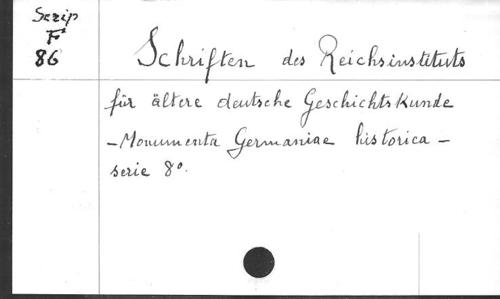 Scrip
F²
86
Schriften des Reichsinstituts
für ältere deutsche Geschichtskunde
- Monumenta Germaniae historica -
serie 8°.